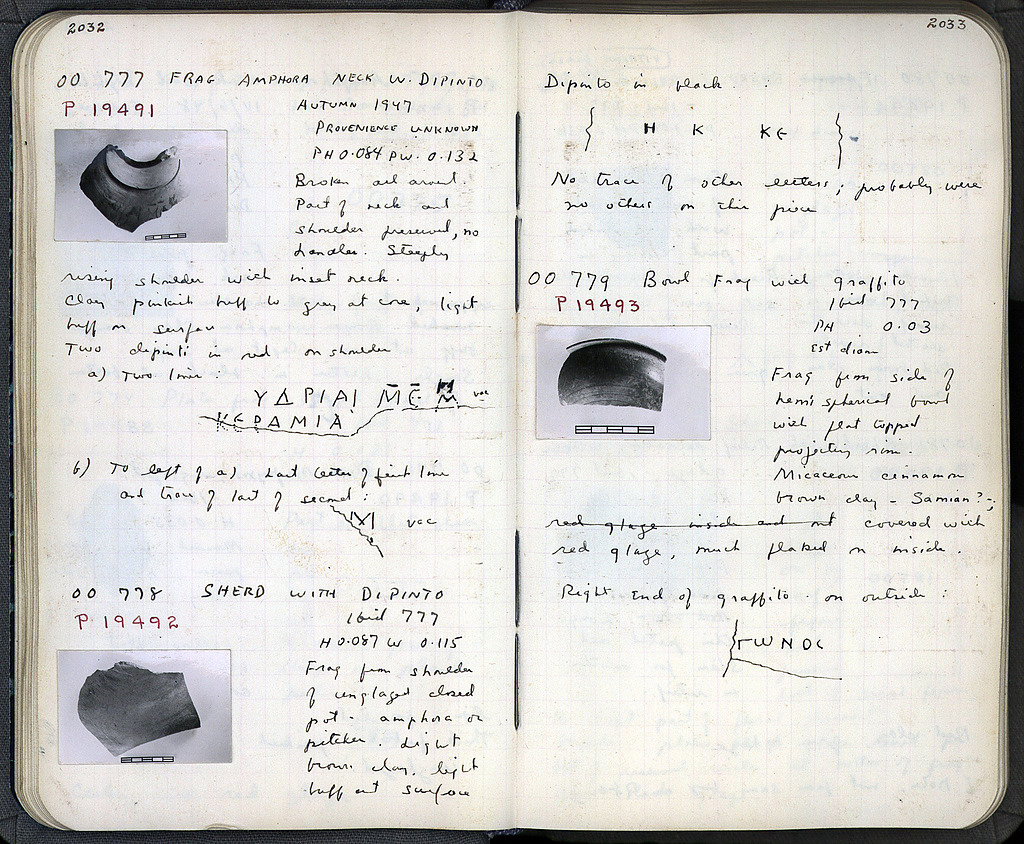 2032
OO 777 FRAG AMPHORA NECK W. DIPINTO
P 19491
AUTUMN 1947
PROVENIENCE UNKNOWN
PH 0.084 PW. 0.132
Broken all around.
Part of neck and
shoulder preserved, no
handles. Steeply
rising shoulder with inset neck.
Clay pinkish buff to gray at core, light
buff on surface
Two dipinti in red on shoulder
a) Two lines:
ΥΔΡΙΑΙ Μ̄Ε̄ vac
ΚΕΡΑΜΙΑ
b) To left of a) Last letter of first line
and trace of last of second:
vac
OO 778 SHERD WITH DIPINTO
P 19492
Ibid 777
H 0.087 W 0.115
Frag from shoulder
of unglazed closed
pot - amphora or
pitcher. Light
brown clay, light
buff at surface
2033
Dipinto in black.
Η Κ ΚΕ
No trace of other letters; probably were
no others on this piece
OO 779 Bowl Frag with graffito
P 19493
Ibid 777
PH 0.03
Est diam
Frag from side of
hemispherical bowl
with flat topped
projecting rim.
Micaceous cinnamon
brown clay - Samian? -;
red glaze inside and out covered with
red glaze, much flaked on inside.
Right end of graffito on outside:
ΓWNOC